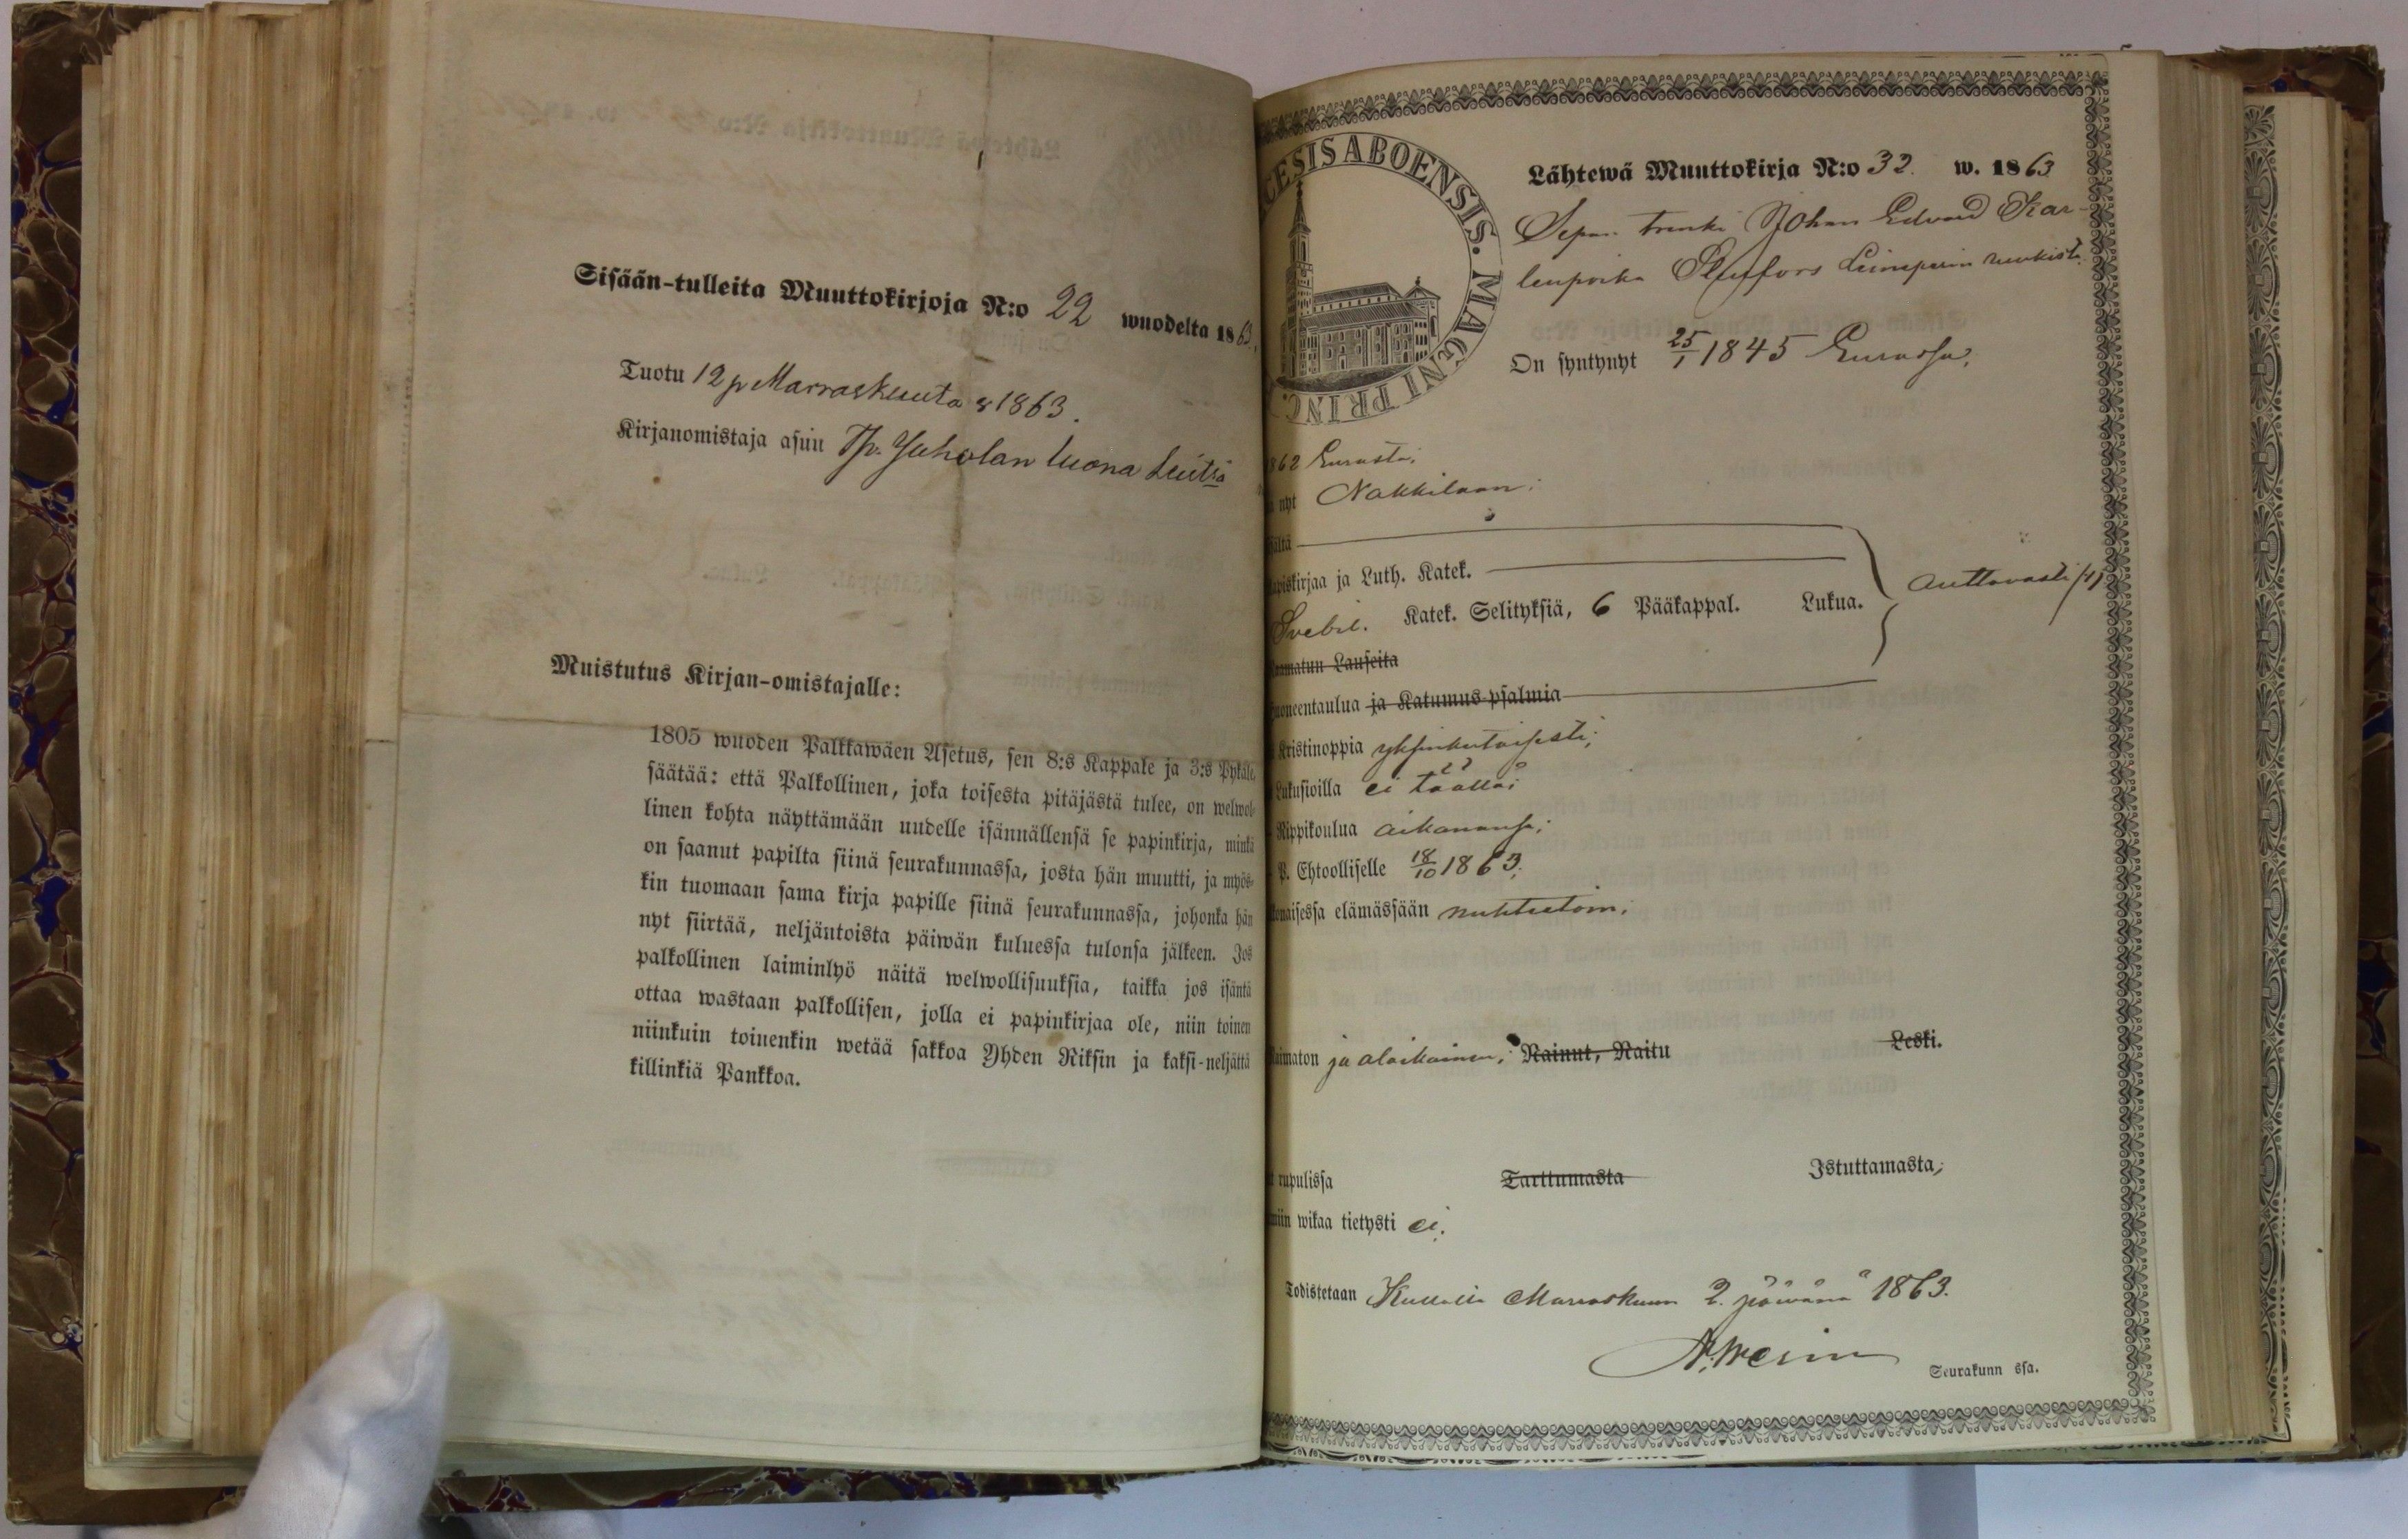 Sisään-tulleita Muuttokirjoja N:o 22 wuodelta 1863.
Tuotu 12 p Marraskuuta 1863.
Kirjanomistaja asuu Juholan luona
Muistutus Kirjan-omistajalle:
1805 wuoden Palkkawäen Asetus, sen 8:s Kappale ja 3:s Pykälä
säätää: että Palkollinen, joka toisesta pitäjästä tulee, on welwol-
linen kohta näyttämään uudelle isännällensä se papinkirja, minkä
on saanut papilta siinä seurakunnassa, josta hän muutti, ja myös-
kin tuomaan sama kirja papille siinä seurakunnassa, johonka hän
nyt siirtää, neljäntoista päiwän kuluessa tulonsa jälkeen. Jos
palkollinen laiminlyö näitä welwollisuuksia, taikka jos isäntä
ottaa wastaan palkollisen, jolla ei papinkirjaa ole, niin toinen
niinkuin toinenkin wetää sakkoa Yhden Riksin ja kaksi-neljättä
killinkiä Pankkoa.
CESIS ABOENSIS. MAGNI PRINC.
Lähtewä Muuttokirja N:o 32. w. 1863
Sepän trenki Johan Edvard Kar-
lenpoika
On syntynyt 25/1 1845 Eurassa.
862 Eurasta;
nyt Nakkilaan;
ältä
apiskirjaa ja Luth. Katek.
Svebil. Katek. Selityksiä, 6 Pääkappal. Lukua. auttavasti
amatun Lauseita
uoneentaulua ja Katumus-psalmia
Kristinoppia yksinkertaisesti;
Lukusioilla ei täällä;
Rippikoulua aikanansa;
P. Ehtoolliselle 18/10 1863;
onaisessa elämässään nuhteetoin;
aimaton ja alaikainen; Nainut, Naitu Leski.
rupulissa Tarttumasta Istuttamasta;
miin wikaa tietysti ei.
Todistetaan Kullalla Marraskuun 2. päivänä 1863.
Seurakunn ssa.